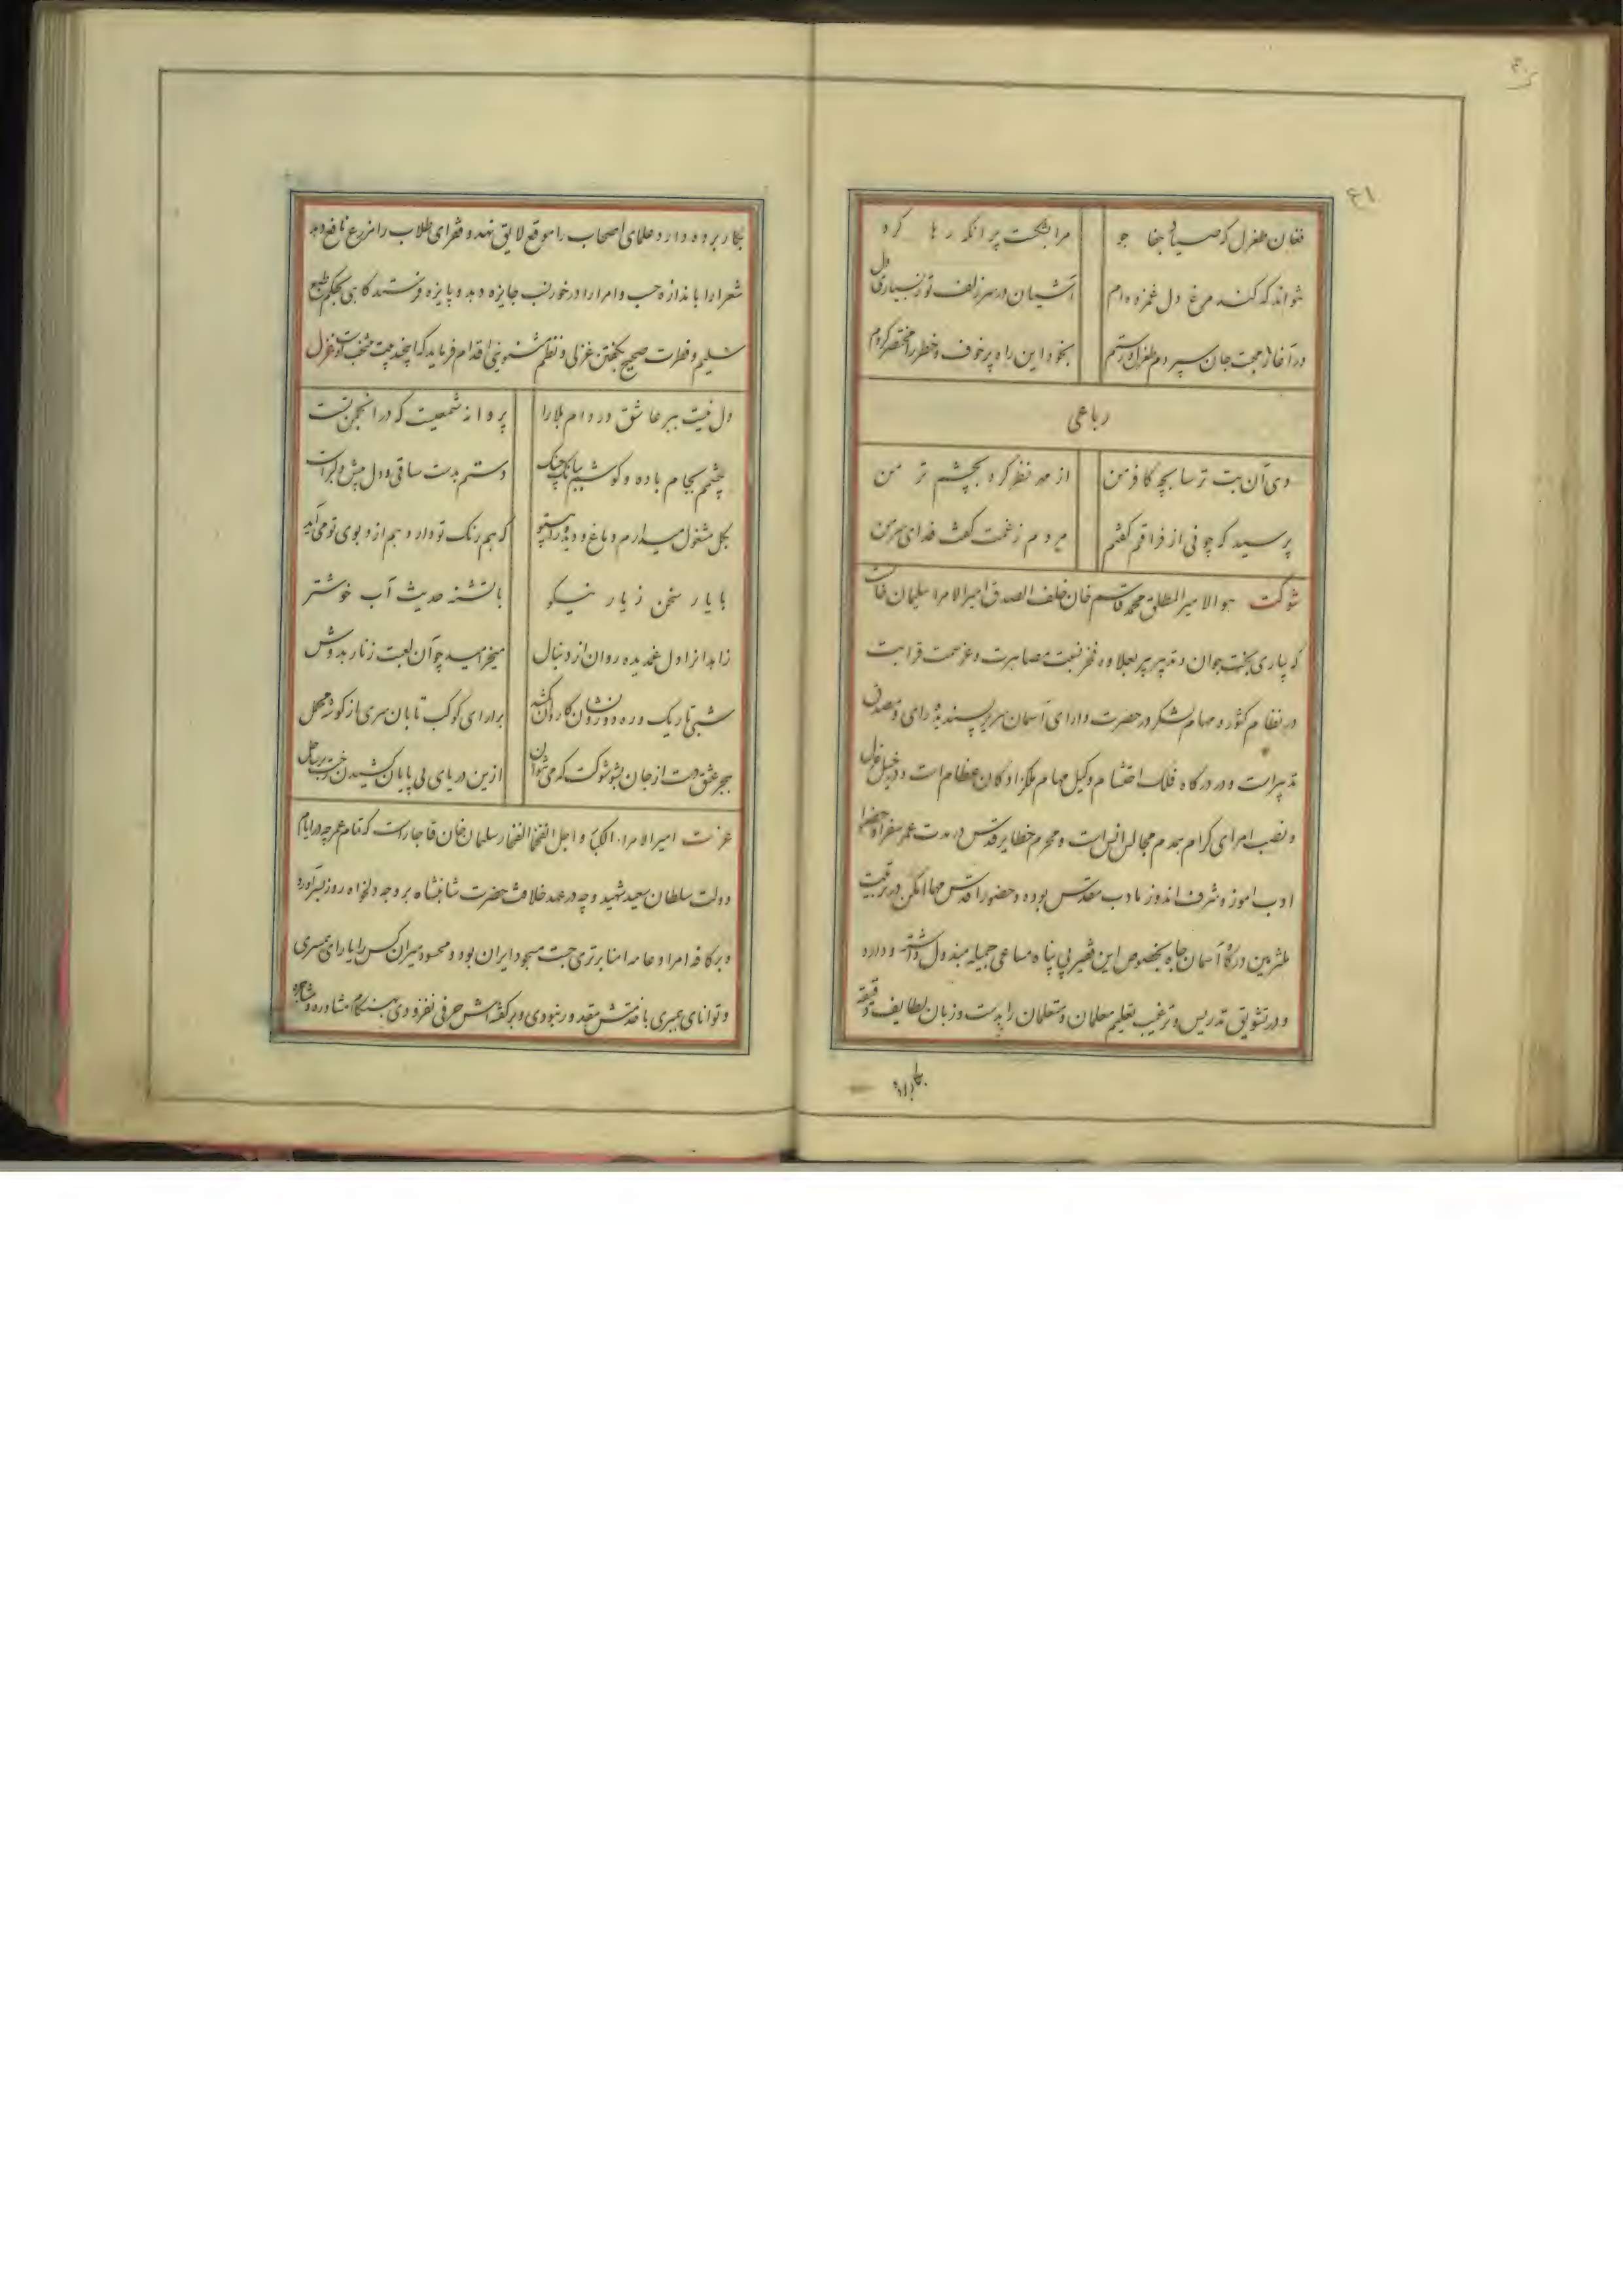 ۶۱
فغان طغرل که صیاد جفا جو مرا بشکست پر انکه رها کرد
نتواند که کند مرغ دل غمزده ام آشیان در سر زلف تو ز بسیاری دل
در آغاز محبت جان سپردم طغرل و رستم بخود این راه پر خوف و خطر را مختصر کردم
رباعی
دی آن بت ترسا بچه کافر من از مهر نظر کرد بچشم تر من
پرسید که چونی از فراقم گفتم مردم ز غمت گفت فدای سر من
شوکت هو الامیر المطلق محمد قاسم خان خلف الصدق امیر الامراء سلیمان خان است
که بیاری بخت جوان و تدبیر پیر بعلاوه فخر نسبت مصاهرت و عز سمت قرابت
در نظام کشور و مهام لشکر در حضرت دارای آسمان سریر پسندیده رای و مصدق
تدبیر است و در درگاه فلک احتشام وکیل مهام ملکزادگان عظام است و دخیل عزل
و نصب امرای کرام همدم مجالس انس است و محرم حظایر قدس در مدت عمر سفرا و حضرا
ادب اموز و شرف اندوز مادب مقدس بوده و حضور اقدس مهما امکن در تربیت
ملتزمین درگاه آسمان جاه بخصوص این فقیر بی پناه مساعی جمیله مبذول داشته و دارد
و در تشویق تدریس و ترغیب تعلیم معلمان و متعلمان را بدست و زبان لطایف دقیقه
بکار برده
بکار برده و دارد علمای اصحاب را موقع لایق نهد و فقرای طلاب را مزرع نافع دهد
شعرا را باندازه حسب و امرا را در خور نسب جایزه دهد و پایزه فرستد کاهی بحکم طبع
سلیم و فطرت صحیح بگفتن غزلی و نظم مثنویی اقدام فرماید که اینچند بیت منتخب اوست غزل
دل نیست ببر عاشق در دام بلا را پروانه شمعیست که در انجمن تست
چشمم بجام باده و کوشم ببانک چنک دستم بدست ساقی و دل پیش دلبر است
بگل مشغول میدارم دماغ و دیده را بیتو که هم رنک تو دارد هم از و بوی تو می آید
با یار سخن ز یار نیکو با تشنه حدیث آب خوشتر
زاهدانرا دل غمدیده روان از دنبال میخرامید چو آن لعبت زنار بدوش
شبی تاریک و ره دور و نشان کاروان گم شد برار ای کوکب تابان سری از گوشه محمل
ببحر عشق دست از جان بشو شوکت که می نتوان ازین دریای بی پایان کشیدن رخت بر ساحل
عزت امیر الامراء الکبار و اجل الفخما الفخار سلیمان خان قاجار است که تمام عمر چه در ایام
دولت سلطان سعید شهید و چه در عهد خلافت حضرت شاهنشاه بر وجه دلخواه روز بسر آورد
و بر کافه امرا و عامه امنا برتری جست مسجود ایران بود و محسود میران کس را یارای همسری
و توانای همبری با خدمتش مقدور نبودی و بر کفته اش حرفی نفزودی هنکام مشاوره و مشاجره